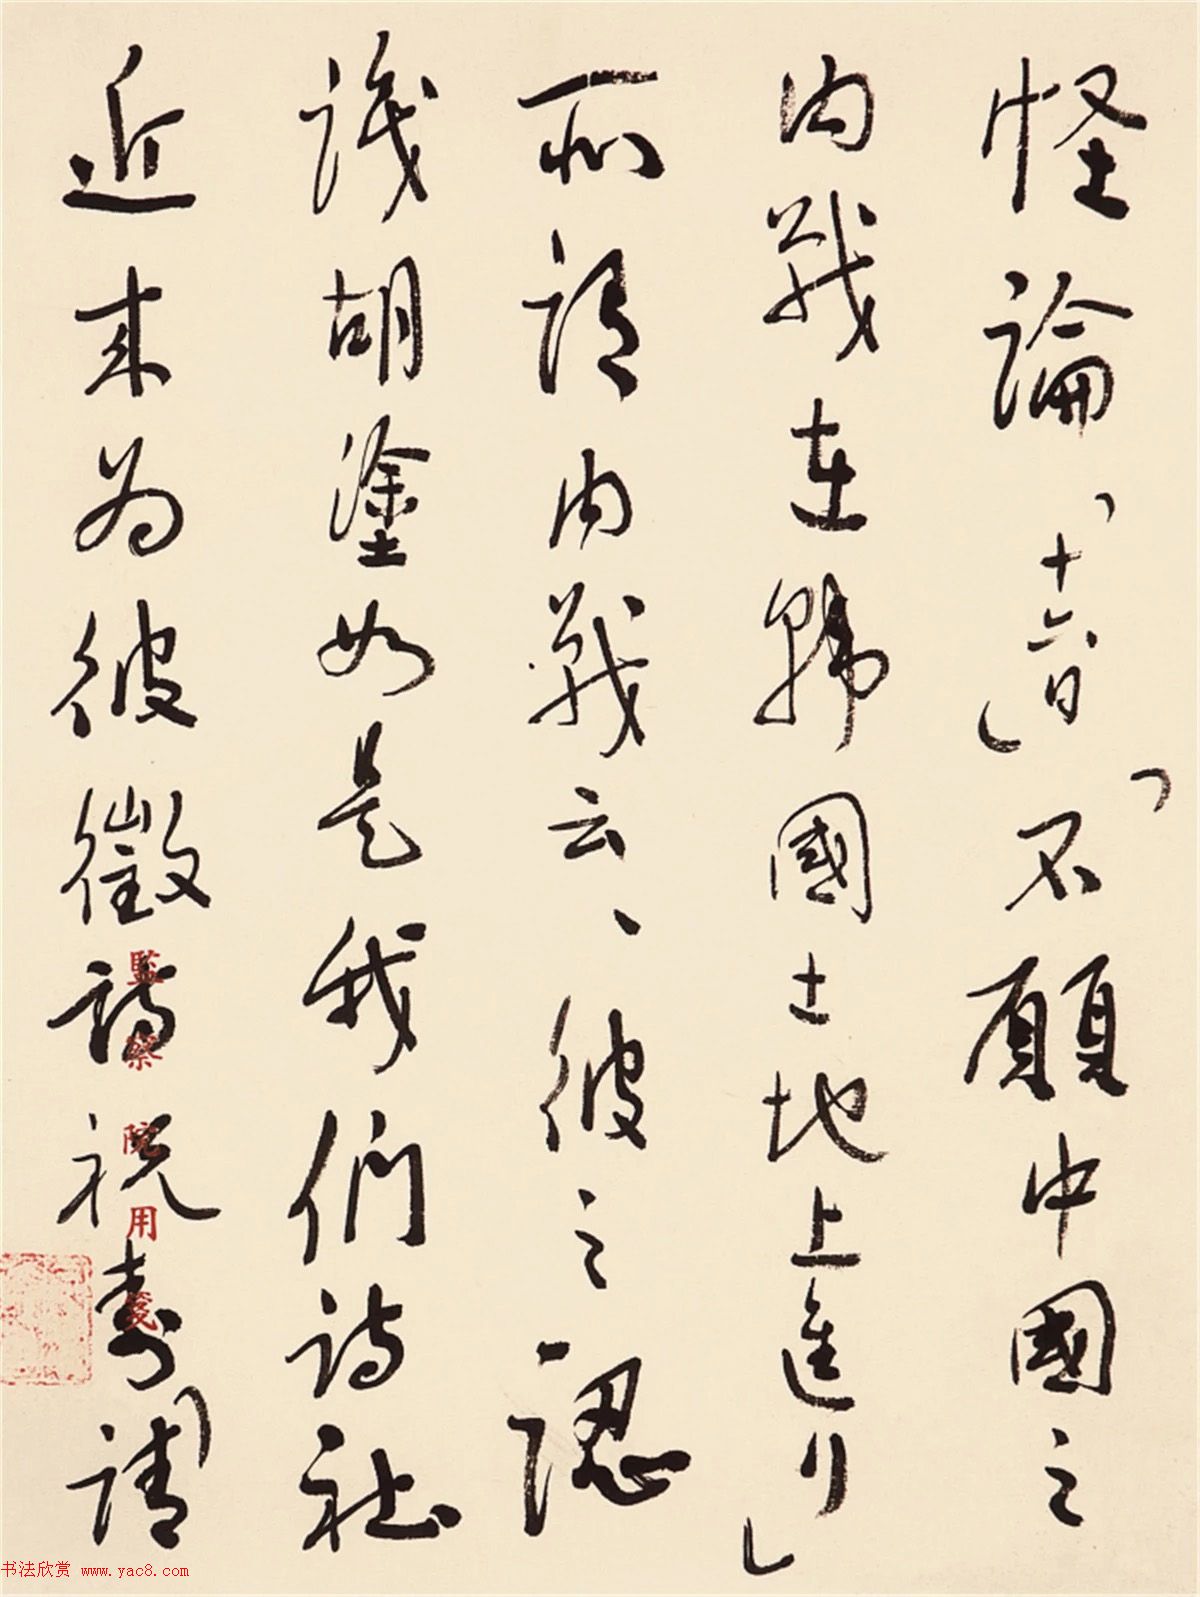 怪論「十六日」「不願中國之
內戰在韓國土地上進行」
所謂內戰云、彼之認
識胡塗如是我們詩社
近來為彼徵詩祝壽請
監察院用箋
书法欣赏 www.yac8.com